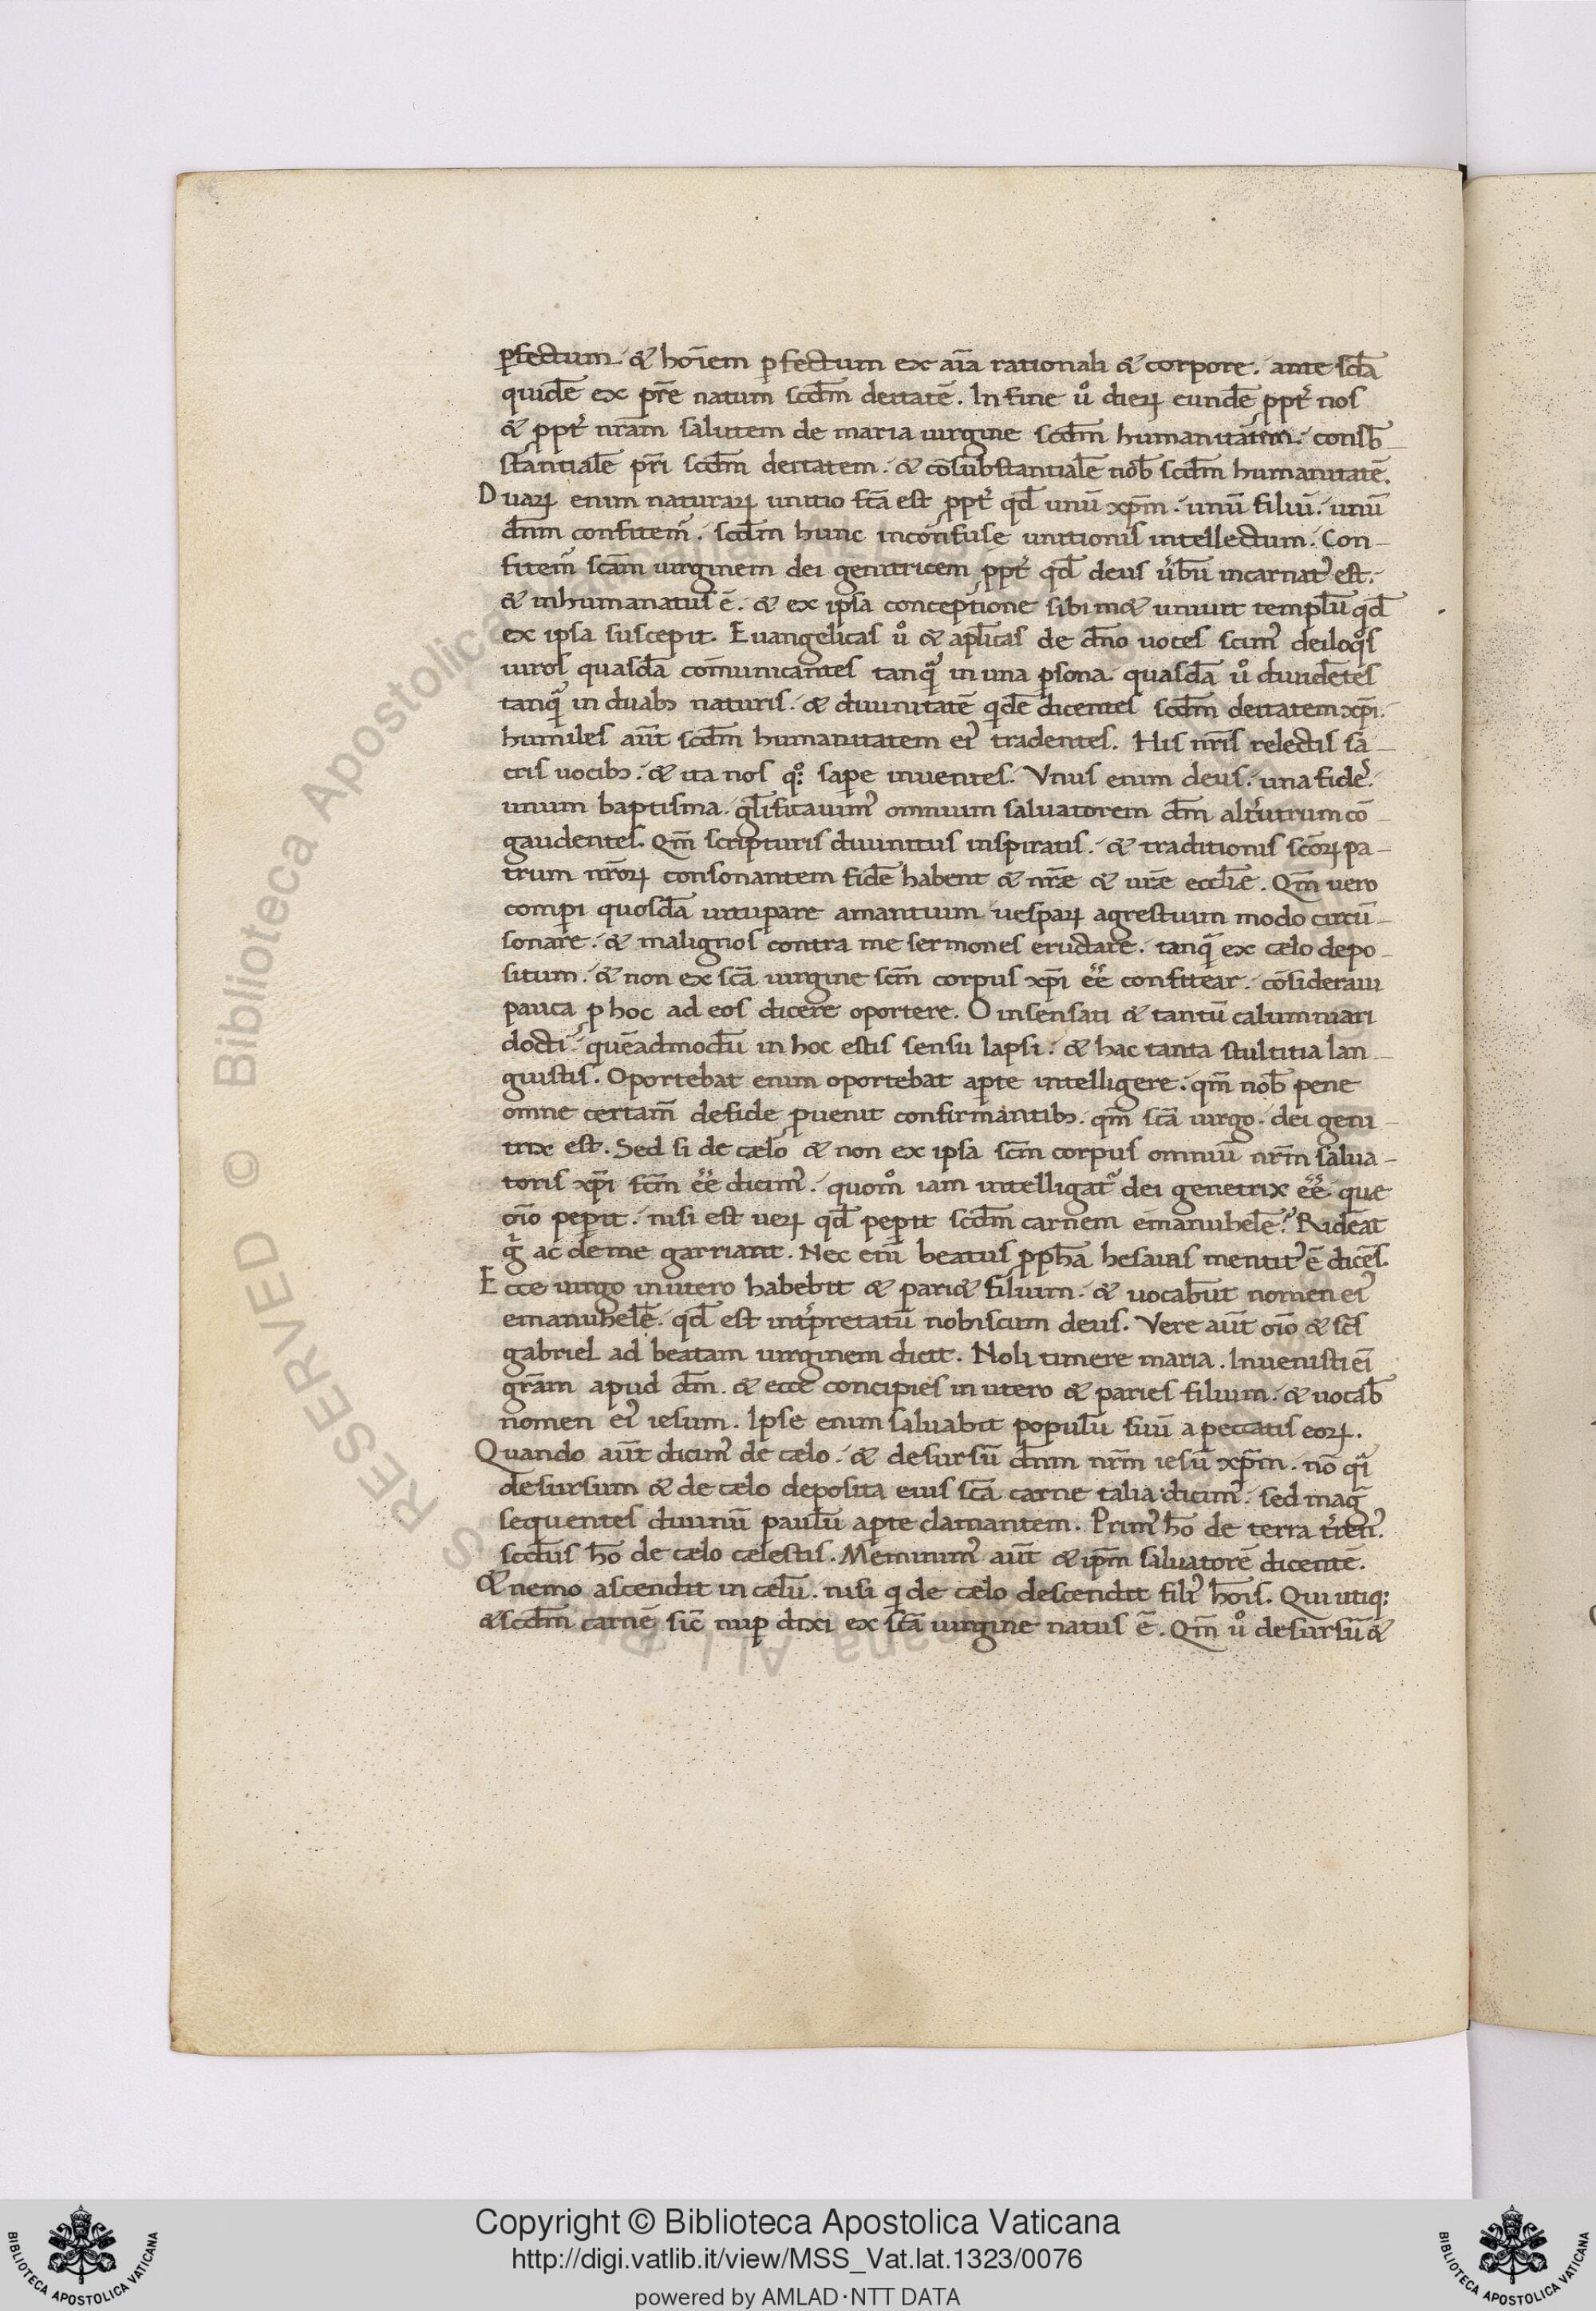 ꝑfectum. & hoīem ꝑfectum ex aīa rationali & corpore. ante sc̄la
quidē ex pr̄e natum scd̄m deitatē. In fine ů dieꝝ eundē ꝓpt̓ nos
& ꝓpt̓ nr̄am salutem de maria uirgine scd̄m humanitatem. consb̄-
stantialē pr̄i scd̄m deitatem. & cōsubstantialē nob̄ scd̄m humanitatē.
Duaꝝ enim naturaꝝ unitio fc̄a est ꝓpt̓ qd̄ unū xp̄m. unū filiū. unū
dn̄m confitem̓. scd̄m hunc inconfusę unitionis intellectum. Con-
fitem̓ sc̄am uirginem dei genitricem ꝓpt̓ qd̄ deus u̓bū incarnat̓ est.
& inhumanatus ē. & ex ipsa conceptione sibim& uniuit templū qd̄
ex ipsa suscepit. Euangelicas ů & apl̄icas de dn̄o uoces scim̓ deiloq̊s
uiros quasdā com̄unicantes tanquā in una ꝑsona. quasdā ů diuidētes
tanquā in duabꝫ naturis. & diuinitatē qidē dicentes scd̄m deitatem xp̄i.
humiles aūt scd̄m humanitatem ei̓ tradentes. His nr̄is relectis sa-
cris uocibꝫ. & ita nos q̊: sapere inuentes. Vnus enim deus. una fides.
unum baptisma. gl̄ificauim̓ omnium saluatorem dm̄ alt̓utrum cō-
gaudentes. Qm̄ scripturis diuinitus inspiratis. & traditionis sc̄oꝝ pa-
trum nr̄oꝝ consonantem fidē habent & nr̄æ & ur̄æ eccl̄ie. Qm̄ uero
comꝑi quosdā uitupare amantium uespaꝝ agrestium modo circū-
sonare. & malignos contra me sermones eructare. tanquā ex cælo depo-
situm. & non ex sc̄a uirgine sc̄m corpus xp̄i ee̅ confitear. cōsideraui
pauca ꝓ hoc ad eos dicere oportere. O insensati & tantū calumniari
docti. quēadmodū in hoc estis sensu lapsi. & hac tanta stultitia lan-
guistis. Oportebat enim oportebat aꝑte intelligere. qm̄ nob̄ pene
omne certam̄ de fide ꝓuenit confirmantibꝫ. qm̄ sc̄a uirgo. dei geni-
trix est. Sed si de cælo & non ex ipsa sc̄m corpus omniū nr̄m salua-
toris xp̄i fc̄m ee̅ dicim̓. quom̊ iam intelligat̓ dei genetrix ee̅. que
oīo peꝑit. nisi est ueꝝ qd̄ peꝑit scd̄m carnem emanuhelē? Rideāt
g̓ ac de me garriant. Nec eni̅ beatus ꝓph̄a hesaias mentit̓ ē dicēs.
Ecce uirgo in utero habebit & pari& filium. & uocabūt nomen ei̓
emanuhelē. qd̄ est int̓pretatū nobiscum deus. Vere aūt oīo & sc̄s
gabriel ad beatam uirginem dicit. Noli timere maria. Inuenisti eī
gr̄am apud dm̄. & ecce concipies in utero & paries filium. & uocab̄
nomen ei̓ iesum. Ipse enim saluabit populū suū a peccatis eoꝝ.
Quando aūt dicim̓ de cælo. & desursū dn̄m nr̄m iesū xp̄m. nō quā
desursum & de cælo deposita eius sc̄a carne talia dicim̓. sed mag̅
sequentes diuinū paulū aꝑte clamantem. Prim̓ hō de terra t̓ren̓.
scd̄us hō de cælo cælestis. Meminim̓ aūt & ip̄m saluatorē dicentē.
& nemo ascendit in cælū. nisi q̓ de cælo descendit fili̓ hōis. Qui utiq:
& scd̄m carnē sic̄ nuꝑ dixi ex sc̄a uirgine natus ē. Qm̄ ů desursū &
Copyright © Biblioteca Apostolica Vaticana
http://digi.vatlib.it/view/MSS_Vat.lat.1323/0076
powered by AMLAD·NTT DATA